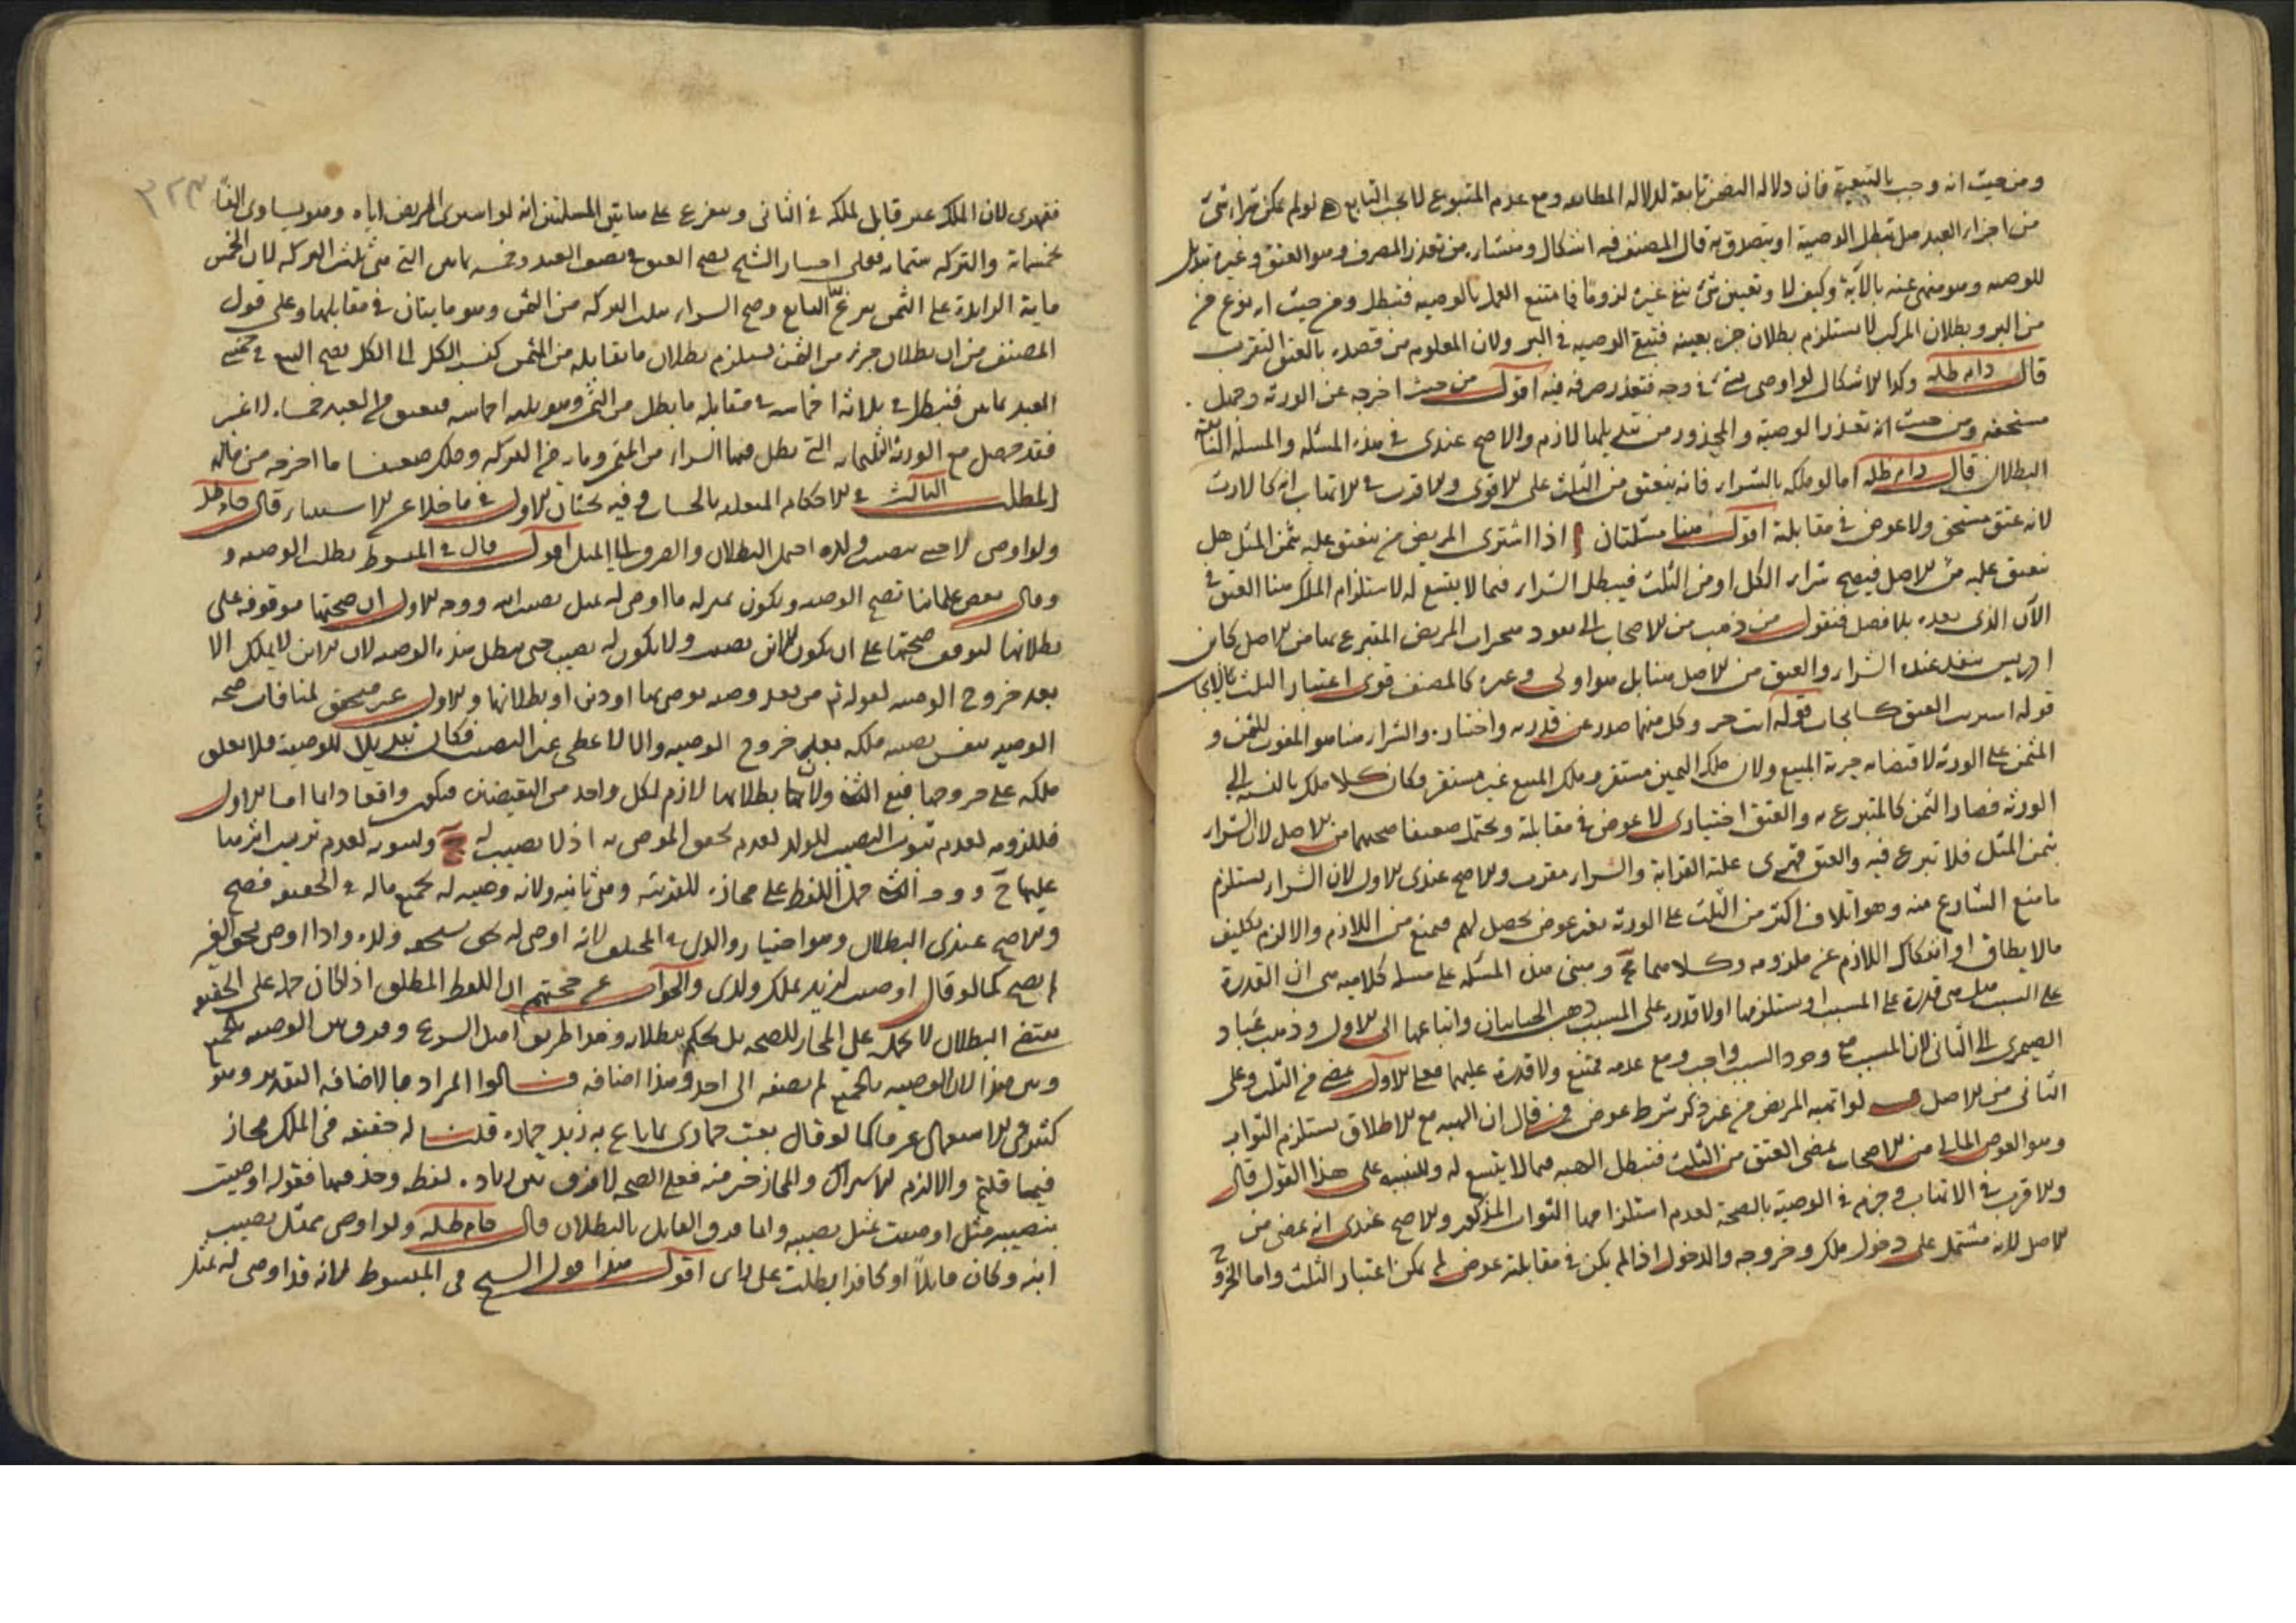 ومن حيث انه وجب بالتبعية فان دلاله التضمن تابعة لدلاله المطابقه ومع عدم المتبوع لا يجب التابع ه لو لم يمكن شراء شئ
من اجزاء العبد هل تبطل الوصية او يتصدق به قال المصنف فيه اشكال ومنشاءه من تعذر المصرف وهو العتق وغيره تبديل
للوصيه وهو منهى عنه بالآية وكيف لا وتعيين شئ ينفى غيره لزوما فامتنع العمل بالوصيه فتبطل ومن حيث انه نوع من
من البر وبطلان المركب لا يستلزم بطلان جزء بعينه فتبقى الوصيه فى البر ولان المعلوم من قصده بالعتق التقرب
قال دام ظله وكذا الاشكال لو اوصى بشئ فى وجه فتعذر صرفه فيه اقول من حيث اخرجه عن الورثة وجهل
مستحقه ومن حيث انه تعذر الوصية والمحذور من تبديلها لازم والاصح عندى فى هذه المسئله والمسئلة السابقة
البطلان قال دام ظله اما لو ملكه بالشراء فانه ينعتق من الثلث على الاقوى والاقرب فى الاتهاب انه كالارث
لانه عتق مستحق ولا عوض فى مقابلة اقول هنا مسئلتان ا اذا اشترى المريض من ينعتق عليه بثمن المثل هل
ينعتق عليه من الاصل فيصح شراء الكل او من الثلث فيبطل الشراء فيما لا يتسع له لاستلزام الملك هنا العتق فى
الآن الذى بعده بلا فصل فنقول من ذهب من الاصحاب الى نفوذ منجزات المريض المتبرع بها من الاصل كابن
ادريس ينفذ عنده الشراء والعتق من الاصل هنا بل هو اولى وغيره كالمصنف قوى اعتبار الثلث
قوله اشتريت العتق كايجاب قوله انت حر وكل منهما صدر عن قدرته واختياره والشراء هنا هو المفوت للثمن و
المثمن على الورثة لاقتضائه حرية المبيع ولان ملك الثمن مستقر وملك المبيع غير مستقر فكان كلا ملك بالنسبة الى
الورثة فصار الثمن كالمتبرع به والعتق اختيارى لا عوض فى مقابلة ويحتمل ضعيفا صحتهما من الاصل لان الشراء
بثمن المثل فلا تبرع فيه والعتق قهرى علة القرابة والشراء مقرب والاصح عندى الاول لان الشراء يستلزم
ما منع الشارع منه وهو اتلاف اكثر من الثلث على الورثة بغير عوض يحصل لهم فيمنع من اللازم والا لزم تكليف
ما لا يطاق او انفكاك اللازم عن ملزومه وكلاهما مح ومبنى هذه المسئله على مسله كلاميه هى ان القدرة
على السبب هل هى قدرة على المسبب او يستلزمها او لا قدرة على المسبب ذهب الجبائيان واتباعهما الى الاول وذهب عباد
الصيمرى الى الثانى لان المسبب مع وجود السبب واجب ومع عدمه ممتنع ولا قدرة عليهما فعلى الاول يمضى من الثلث وعلى
الثانى من الاصل ب لو اتهبه المريض من غير ذكر شرط عوض فمن قال ان الهبه مع الاطلاق يستلزم الثواب
وهو العوض المالى من الاصحاب يمضى العتق من الثلث فتبطل الهبه فيما لا يتسع له وللتنبيه على هذا القول قال
والاقرب فى الاتهاب وجزم فى الوصية بالصحة لعدم استلزامها الثواب المذكور والاصح عندى انه يمضى من
الاصل لانه مشتمل على دخول ملك وخروجه والدخول اذا لم يكن فى مقابلته عوض لم يمكن اعتبار الثلث واما الخروج
٣٢٣
فقهرى لان الملك غير قابل لملكه فى الثانى ويتفرع على هاتين المسئلتين انه لو اشترى المريض اباه وهو يساوى الفا
بخمسمائة والتركه ستمائه فعلى اختيار الشيخ يصح العتق فى نصف العبد وخمسه
ماية الزايدة على الثمن وصح الشراء من الثمن وهو مايتان فى مقابلها وعلى قول
المصنف من ان بطلان جزء من الثمن يستلزم بطلان ما يقابله من المثمن كنسبة الكل الى الكل يصح البيع فى خمسى
العبد فتبطل فى ثلاثه اخماسه فى مقابلة ما يبطل من الثمن وهو ثلثه اخماسه فيعتق من العبد خمساه لا غير
فقد حصل مع الورثة التى بطل فيها الشراء من الثمن من التركه وذلك ضعف ما اخرجه من ماله
المطلب الثالث فى الاحكام المتعلقه بالحساب وفيه بحثان الاول فى ما خلا عن الاستثناء قال دام ظله
ولو اوصى لاجنبى بنصيب ولده احتمل البطلان والصرف الى المثل اقول قال فى المبسوط بطلت الوصيه و
وقال بعض علمائنا تصح الوصيه ويكون بمنزله ما اوصى له بمثل نصيب ابنه ووجه الاول ان صحتها موقوفه على
بطلانها لتوقف صحتها على ان يكون للابن نصيب ولا يكون له نصيب حتى تبطل هذه الوصيه لان الابن لا يملك الا
بعد خروج الوصيه لقوله تع من بعد وصيه يوصى بها او دين او بطلانها والاول غير متحقق لمنافات صحه
الوصيه بنفس نصيبه ملكه بعد خروج الوصيه والا لاعطى غير النصيب فكان تبديلا للوصية فلا يعلق
ملكه على خروجها فبقى الثانى ولان بطلانها لازم لكل واحد من النقيضين فيكون واقعا دايما اما الاول
فللزومه لعدم ثبوت النصيب للولد لعدم تحقق الموصى به اذ لا نصيب له ح وثبوته لعدم ترتب اثرها
عليها ح ووجه الثانى حمل اللفظ على مجازه للقرينة وهى ثانيه ولانه وصيه له بجميع ماله فى الحقيقه فصح
والاصح عندى البطلان وهو اختيار والدى فى المختلف لانه اوصى له بحق يستحقه ولده واذا اوصى بحق الغير
لم يصح كما لو قال اوصيت لزيد بملك ولدى والجواب عن حجتهم ان اللفظ المطلق اذا كان حمله على الحقيقه
يقتضى البطلان لا يحمل على المجاز للصحه بل يحكم ببطلانه وهذا طريق اهل الشرع وفرق بين الوصيه بالجميع
وبين هذا لان الوصيه بالجميع لم يضفه الى احد وهذا اضافه قالوا المراد بالاضافه التقدير وهو
كثير فى الاستعمال عرفا كما لو قال بعت حمارى بما باع به زيد حماره قلنا له حقيقه فى الملك مجاز
فيما قلتم والا لزم الاشتراك والمجاز خير منه فعلى الصحه لا فرق بين زياده لفظه وحذفها فقوله اوصيت
بنصيبه مثل اوصيت بمثل نصيبه وانما فرق القايل بالبطلان قال دام ظله ولو اوصى بمثل نصيب
ابنه وكان قاتلا او كافرا بطلت على راى اقول هذا قول الشيخ فى المبسوط لانه قد اوصى له بمثل